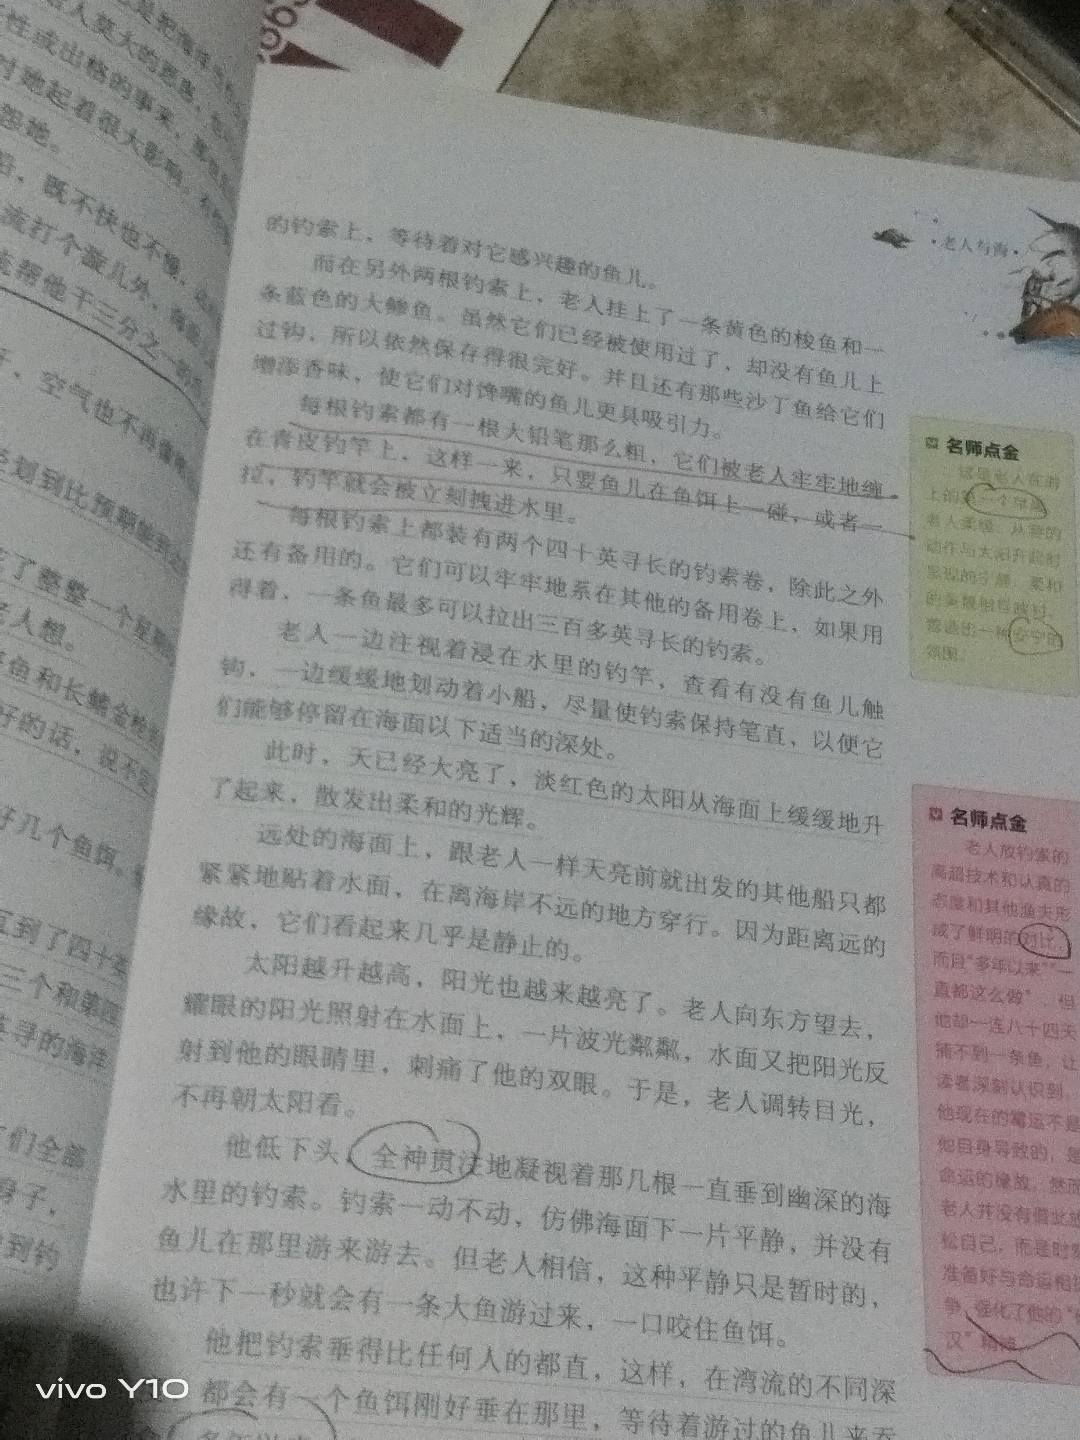 性或出格的事来，
对她起着很大影响。
怨她。
既不快也不慢，
流打个漩儿外，
帮他干三分之一的
空气也不再
划到比预期
了整整一个星期
老人想。
鱼和长鳍金枪
好的话，说不定
好几个鱼饵。
直到了四十英
三个和第四
英寻的海洋
们全部
身子，
到钓
·老人与海·
的钓索上，等待着对它感兴趣的鱼儿。
而在另外两根钓索上，老人挂上了一条黄色的梭鱼和一
条蓝色的大鲹鱼。虽然它们已经被使用过了，却没有鱼儿上
过钩，所以依然保存得很完好。并且还有那些沙丁鱼给它们
增添香味，使它们对馋嘴的鱼儿更具吸引力。
每根钓索都有一根大铅笔那么粗，它们被老人牢牢地缠
在青皮钓竿上，这样一来，只要鱼儿在鱼饵上一碰，或者一
拉，钓竿就会被立刻拽进水里。
每根钓索上都装有两个四十英寻长的钓索卷，除此之外
还有备用的。它们可以牢牢地系在其他的备用卷上，如果用
得着，一条鱼最多可以拉出三百多英寻长的钓索。
老人一边注视着浸在水里的钓竿，查看有没有鱼儿触
钩，一边缓缓地划动着小船，尽量使钓索保持笔直，以便它
们能够停留在海面以下适当的深处。
此时，天已经大亮了，淡红色的太阳从海面上缓缓地升
了起来，散发出柔和的光辉。
远处的海面上，跟老人一样天亮前就出发的其他船只都
紧紧地贴着水面，在离海岸不远的地方穿行。因为距离远的
缘故，它们看起来几乎是静止的。
太阳越升越高，阳光也越来越亮了。老人向东方望去，
耀眼的阳光照射在水面上，一片波光粼粼，水面又把阳光反
射到他的眼睛里，刺痛了他的双眼。于是，老人调转目光，
不再朝太阳看。
他低下头，全神贯注地凝视着那几根一直垂到幽深的海
水里的钓索。钓索一动不动，仿佛海面下一片平静，并没有
鱼儿在那里游来游去。但老人相信，这种平静只是暂时的，
也许下一秒就会有一条大鱼游过来，一口咬住鱼饵。
他把钓索垂得比任何人的都直，这样，在湾流的不同深
都会有一个鱼饵刚好垂在那里，等待着游过的鱼儿来吞
名师点金
这是老人在海
上的第一个早晨
动作与太阳升起时
景观的宁静、柔和
的美景相互映衬，
营造出一种安宁的
氛围。
名师点金
老人放钓索的
高超技术和认真的
态度和其他渔夫形
成了鲜明的对比，
而且“多年以来”“一
直都这么做” 但
他却一连八十四天
捕不到一条鱼，让
读者深刻认识到，
他现在的霉运不是
他自身导致的，是
命运的缘故。然而
老人并没有借此放
松自己，而是时刻
准备好与命运相抗
争，强化了他的“硬
汉”精神。
vivo Y10